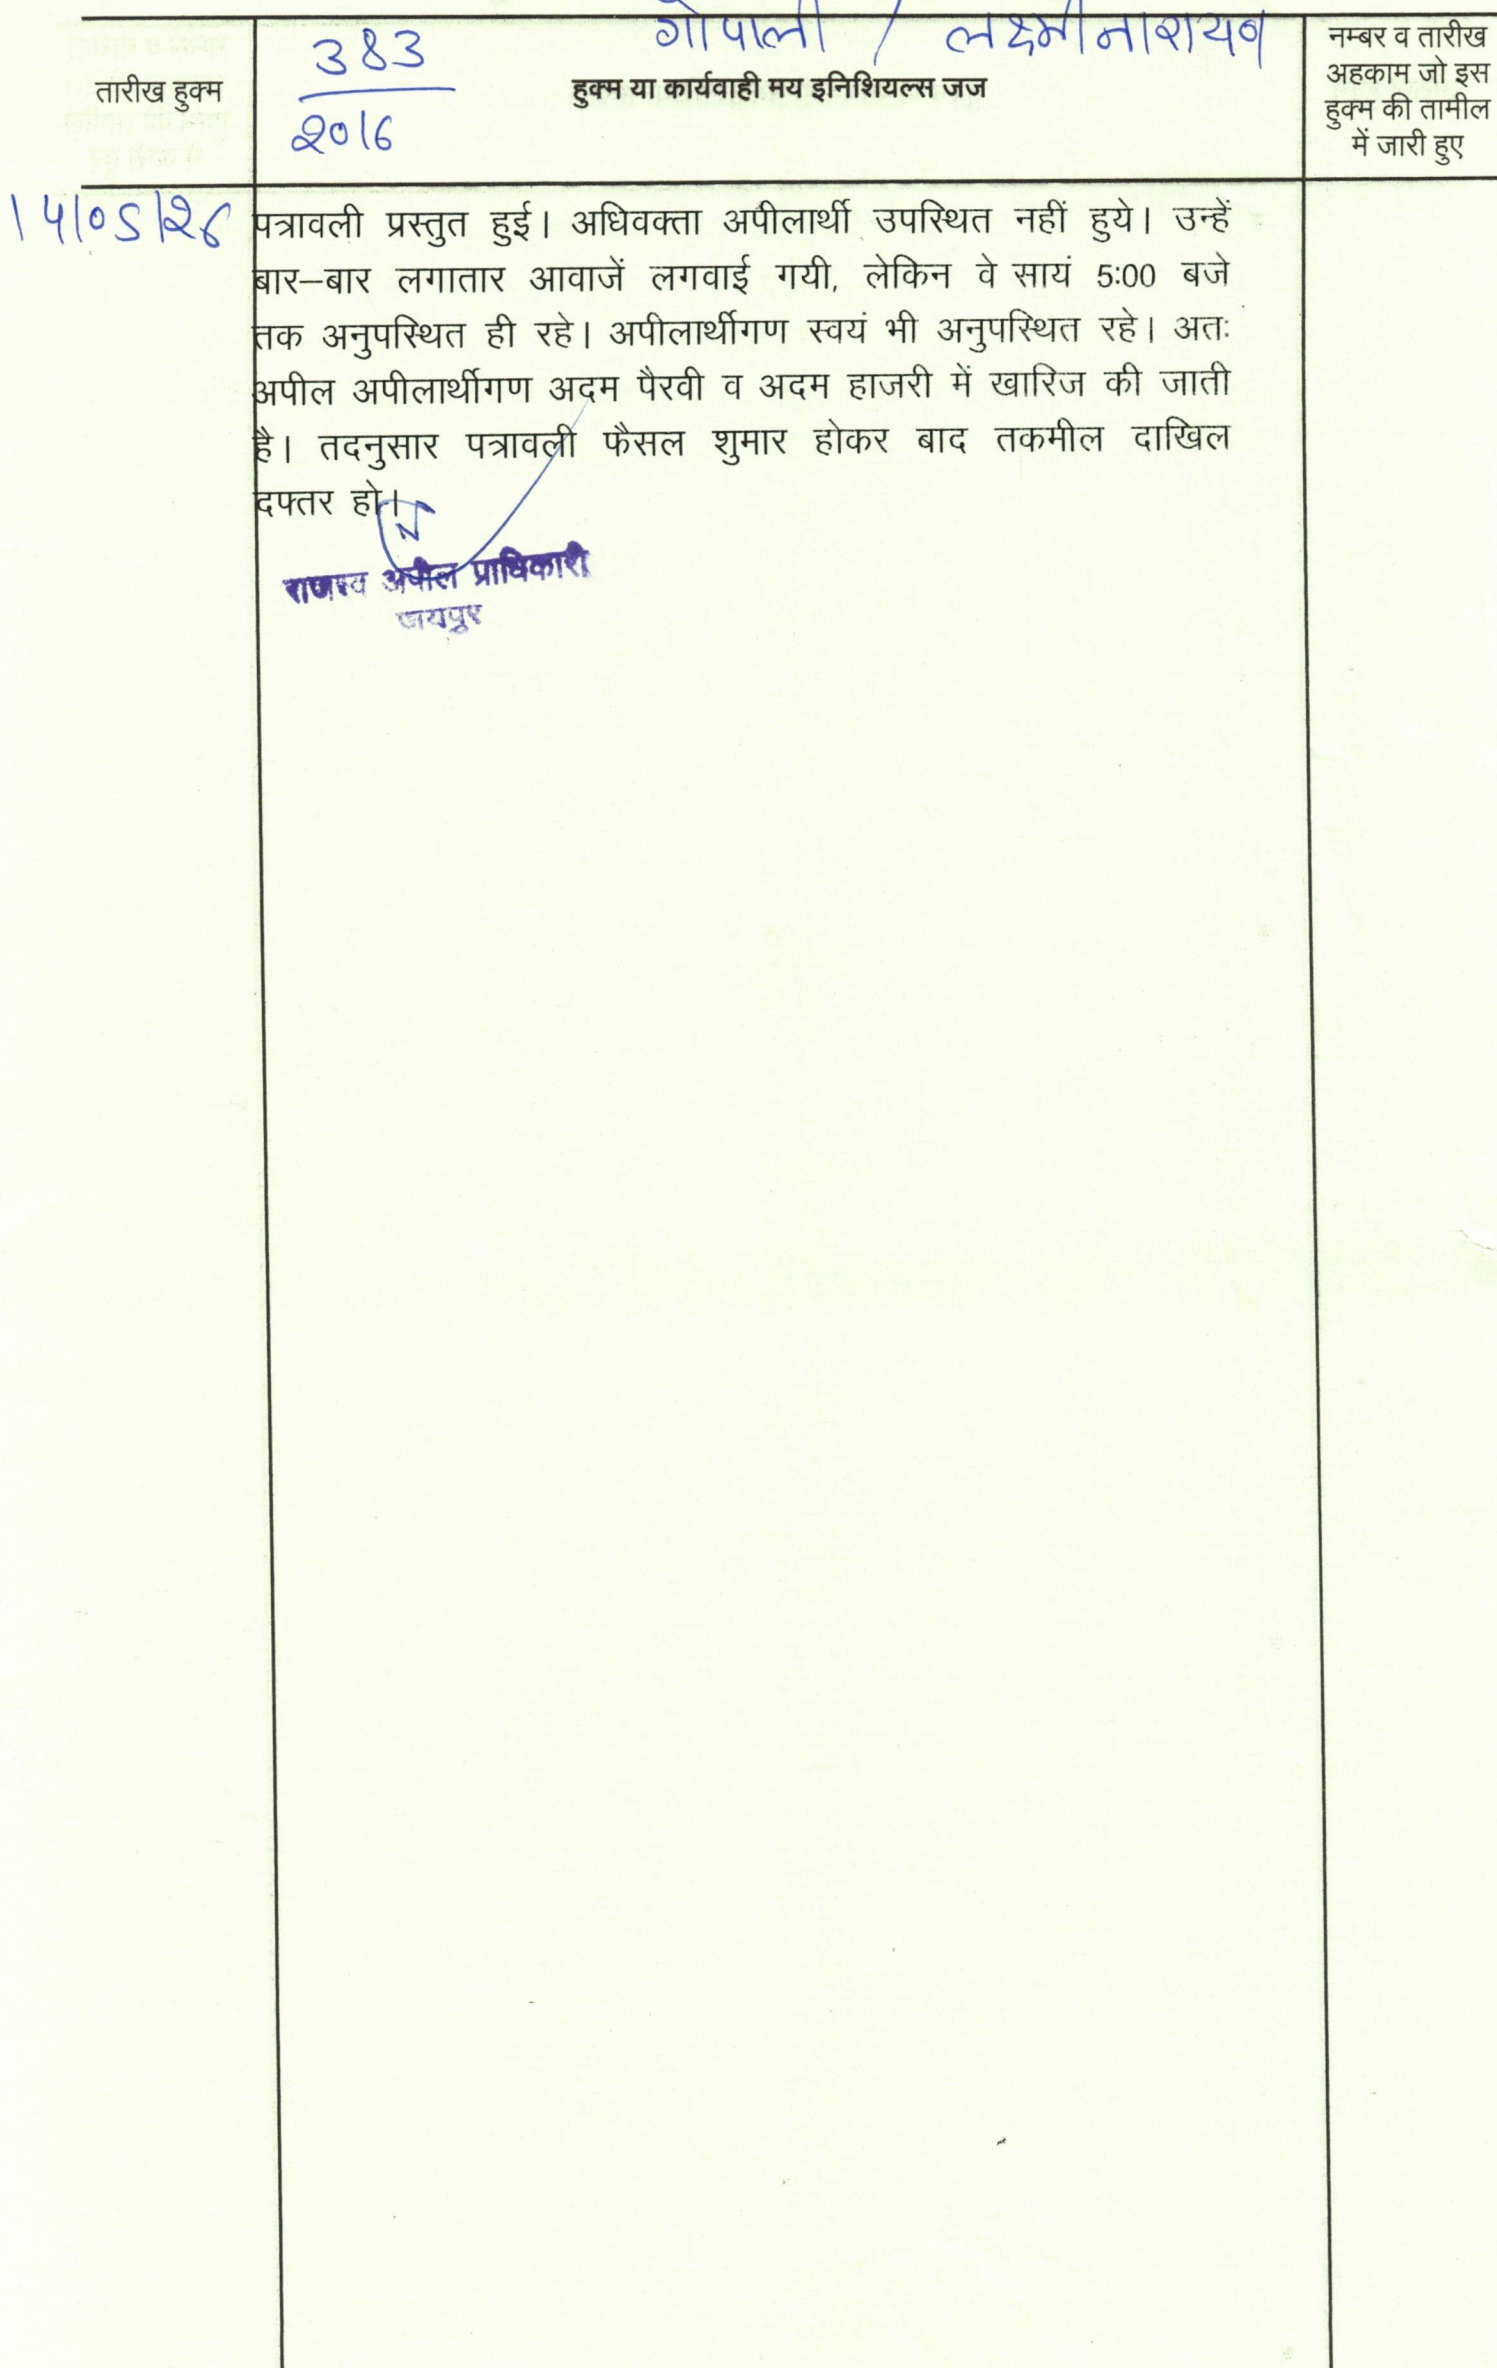 गोपाली / लक्ष्मीनारायण
383
2016
तारीख हुक्म
हुक्म या कार्यवाही मय इनिशियल्स जज
नम्बर व तारीख
अहकाम जो इस
हुक्म की तामील
में जारी हुए
पत्रावली प्रस्तुत हुई। अधिवक्ता अपीलार्थी उपस्थित नहीं हुये। उन्हें
बार–बार लगातार आवाजें लगवाई गयी, लेकिन वे सायं 5:00 बजे
तक अनुपस्थित ही रहे। अपीलार्थीगण स्वयं भी अनुपस्थित रहे। अतः
अपील अपीलार्थीगण अदम पैरवी व अदम हाजरी में खारिज की जाती
है। तदनुसार पत्रावली फैसल शुमार होकर बाद तकमील दाखिल
दफ्तर हो।
राजस्व अपील प्राधिकारी
जयपुर